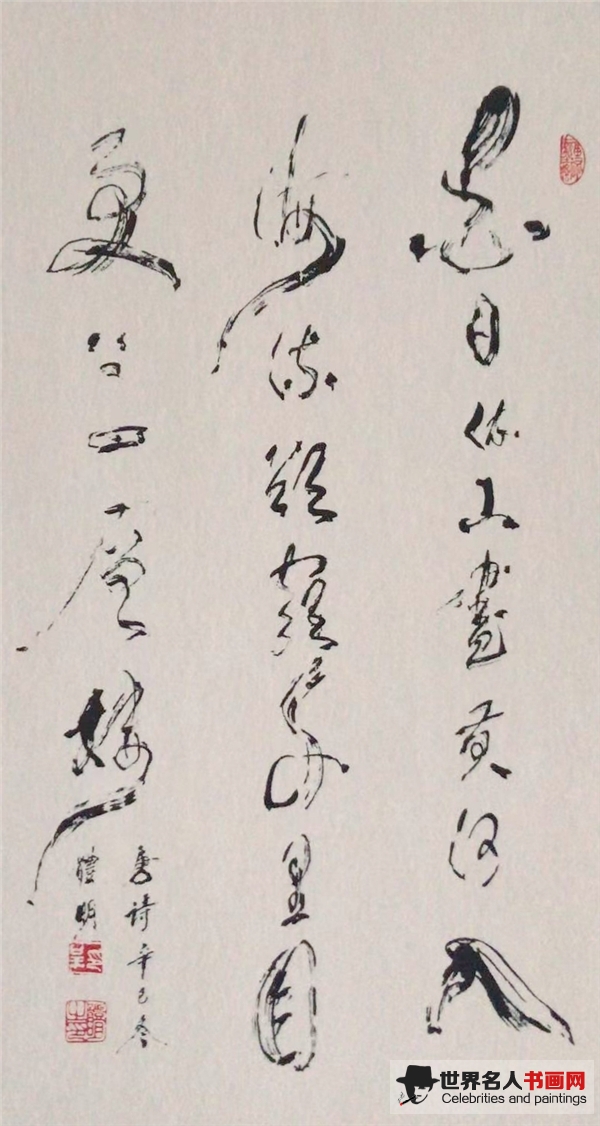 白日依山盡黃河入
海流欲窮千里目
更上一層樓
唐詩辛巳冬
明
世界名人书画网
Celebrities and paintings